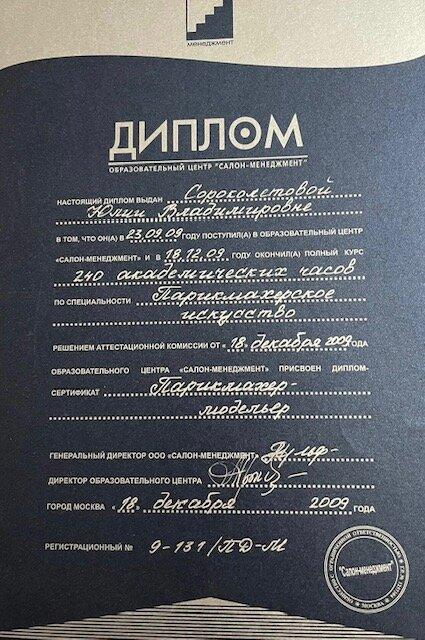 менеджмент
ДИПЛОМ
ОБРАЗОВАТЕЛЬНЫЙ ЦЕНТР "САЛОН-МЕНЕДЖМЕНТ"
НАСТОЯЩИЙ ДИПЛОМ ВЫДАН Сороколетовой
Юлии Владимировне
В ТОМ, ЧТО ОН(А) В 23.09.09 ГОДУ ПОСТУПИЛ(А) В ОБРАЗОВАТЕЛЬНЫЙ ЦЕНТР
«САЛОН-МЕНЕДЖМЕНТ» И в 18.12.09 ГОДУ ОКОНЧИЛ(А) ПОЛНЫЙ КУРС
240 академических часов
ПО СПЕЦИАЛЬНОСТИ Парикмахерское
искусство
РЕШЕНИЕМ АТТЕСТАЦИОННОЙ КОМИССИИ ОТ « 18 » декабря 2009 ГОДА
ОБРАЗОВАТЕЛЬНОГО ЦЕНТРА «САЛОН-МЕНЕДЖМЕНТ» ПРИСВОЕН ДИПЛОМ-
СЕРТИФИКАТ Парикмахер-
модельер
ГЕНЕРАЛЬНЫЙ ДИРЕКТОР ООО «САЛОН-МЕНЕДЖМЕНТ»
ДИРЕКТОР ОБРАЗОВАТЕЛЬНОГО ЦЕНТРА
ГОРОД МОСКВА « 18 » декабря 2009 ГОДА
РЕГИСТРАЦИОННЫЙ № 9-131/ПД-М
ОБЩЕСТВО С ОГРАНИЧЕННОЙ ОТВЕТСТВЕННОСТЬЮ
"Салон-менеджмент"
МОСКВА